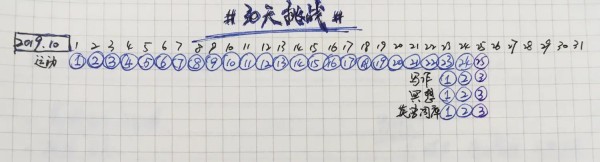 #30天挑战#
2019.10 1 2 3 4 5 6 7 8 9 10 11 12 13 14 15 16 17 18 19 20 21 22 23 24 25 26 27 28 29 30 31
运动 1 2 3 4 5 6 7 8 9 10 11 12 13 14 15 16 17 18 19 20 21 22 23 24 25
写作 1 2 3
冥想 1 2 3
1 2 3